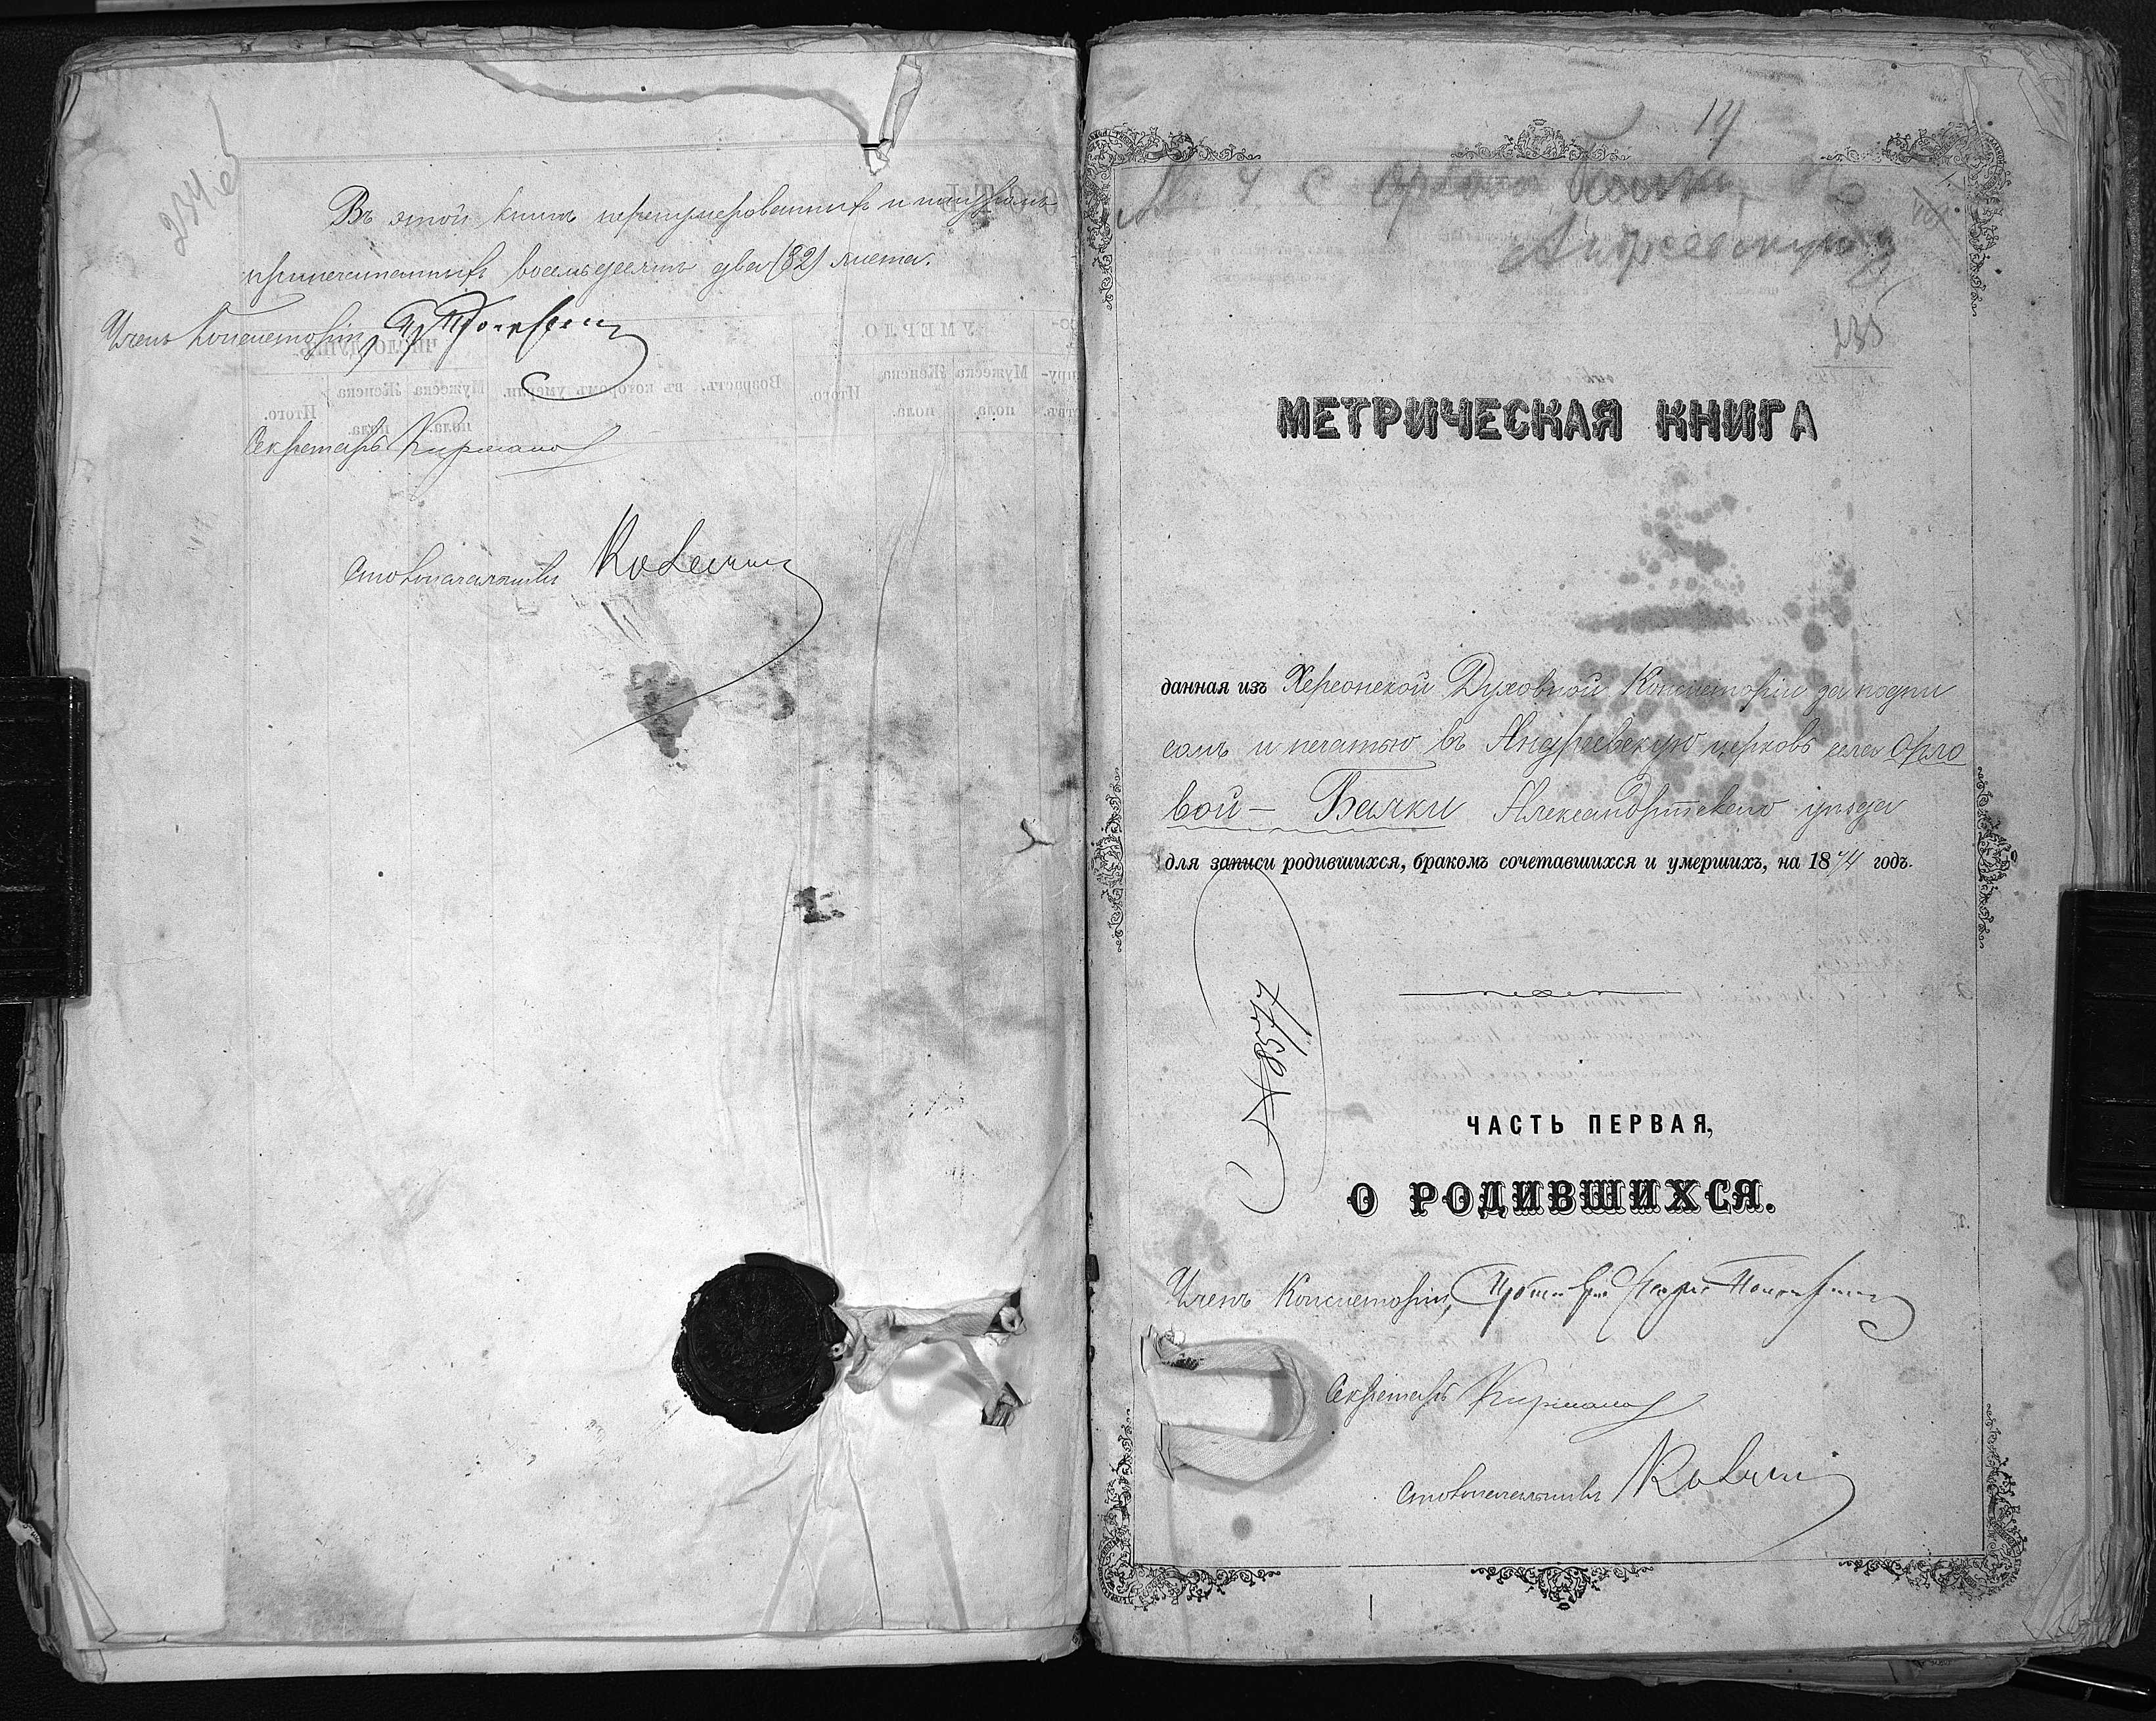 234
Въ этой книгѣ перенумерованныхъ и
припечатанныхъ восемьдесятъ два (82) листа.
Членъ Консисторіи,
Секретарь
Столоначальникъ
14
М. ч. с
Андреевскую
235
МЕТРИЧЕСКАЯ КНИГА
данная изъ Херсонской Духовной Консисторіи за подпи
сомъ и печатью въ Андреевскую церковь села Орло
вой - Балки Александрійскаго уѣзда
для записи родившихся, бракомъ сочетавшихся и умершихъ, на 1874 годъ.
№ 8577
ЧАСТЬ ПЕРВАЯ,
О РОДИВШИХСЯ.
Членъ Консисторіи,
Секретарь
Столоначальникъ